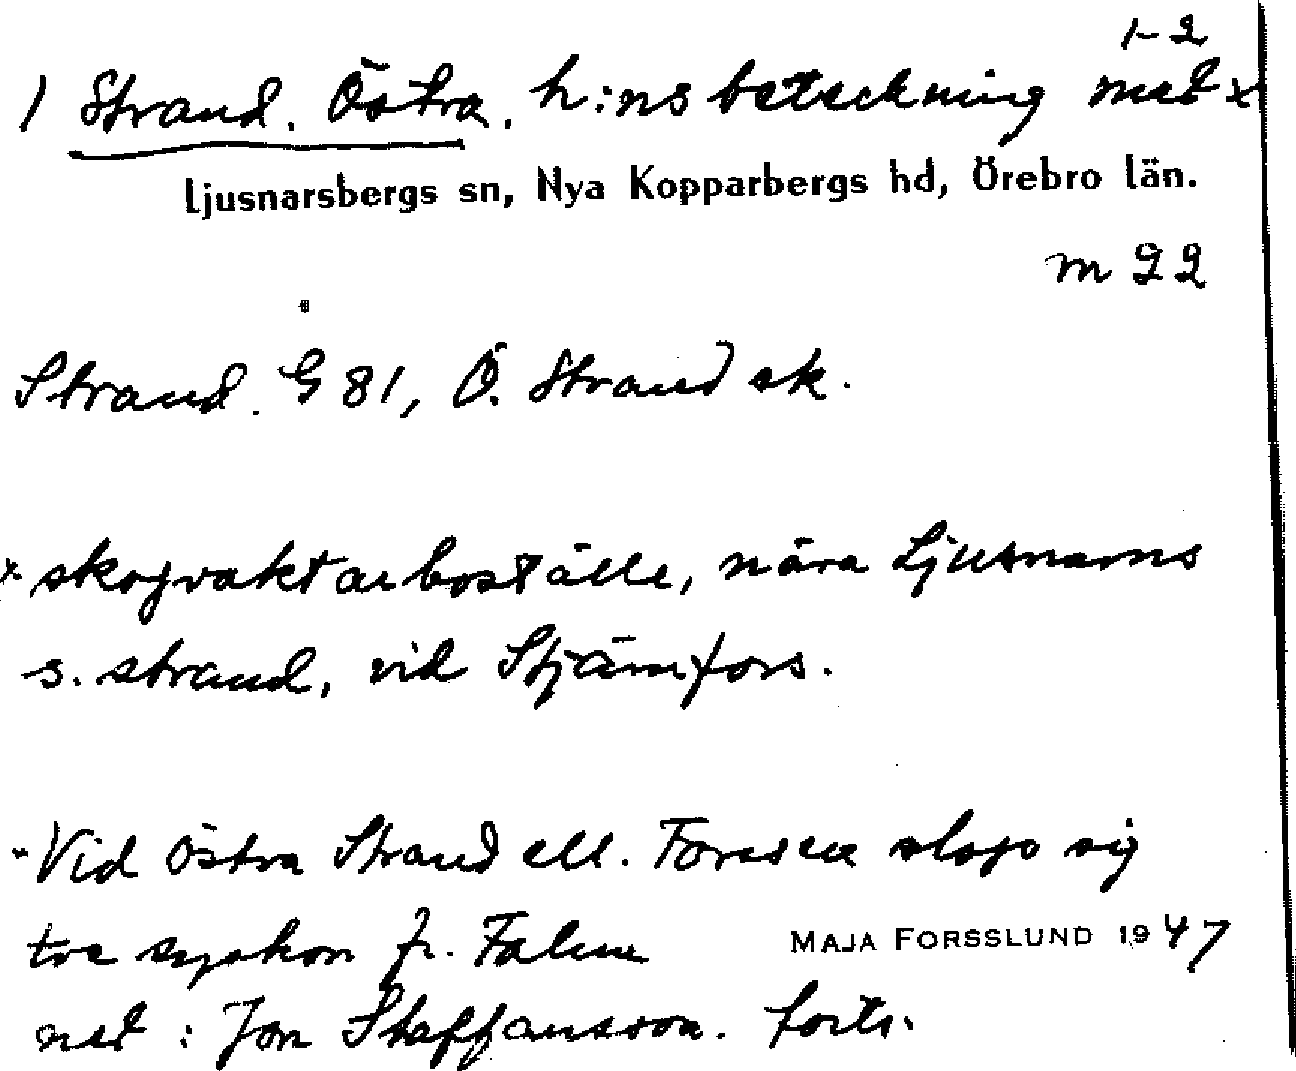 1-2
1 Strand. Östra. h:ns beteckning med x
Ljusnarsbergs sn, Nya Kopparbergs hd, Örebro län.
m 22
Strand. G 81, Ö. Strand ek.
x skogvaktarboställe, nära Ljusnarns
s. strand, vid Stjärnfors.
"Vid Östra Strand ell. Forssen slogo sig
tre syskon fr. Falun
MAJA FORSSLUND 1947
ned: Jon Staffansson. forts.